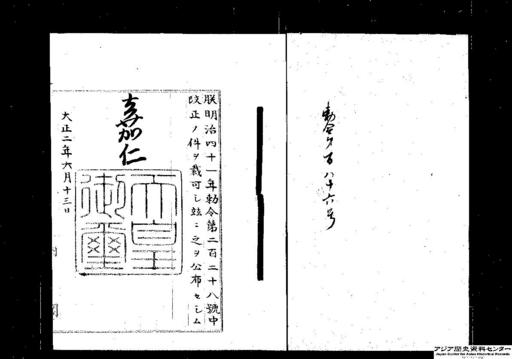 勅令第百八十六号
朕明治四十一年勅令第二百二十八號中
改正ノ件ヲ裁可シ玆ニ之ヲ公布セシム
嘉仁
天皇
御璽
大正二年六月十三日
アジア歴史資料センター
Japan Center for Asian Historical Records